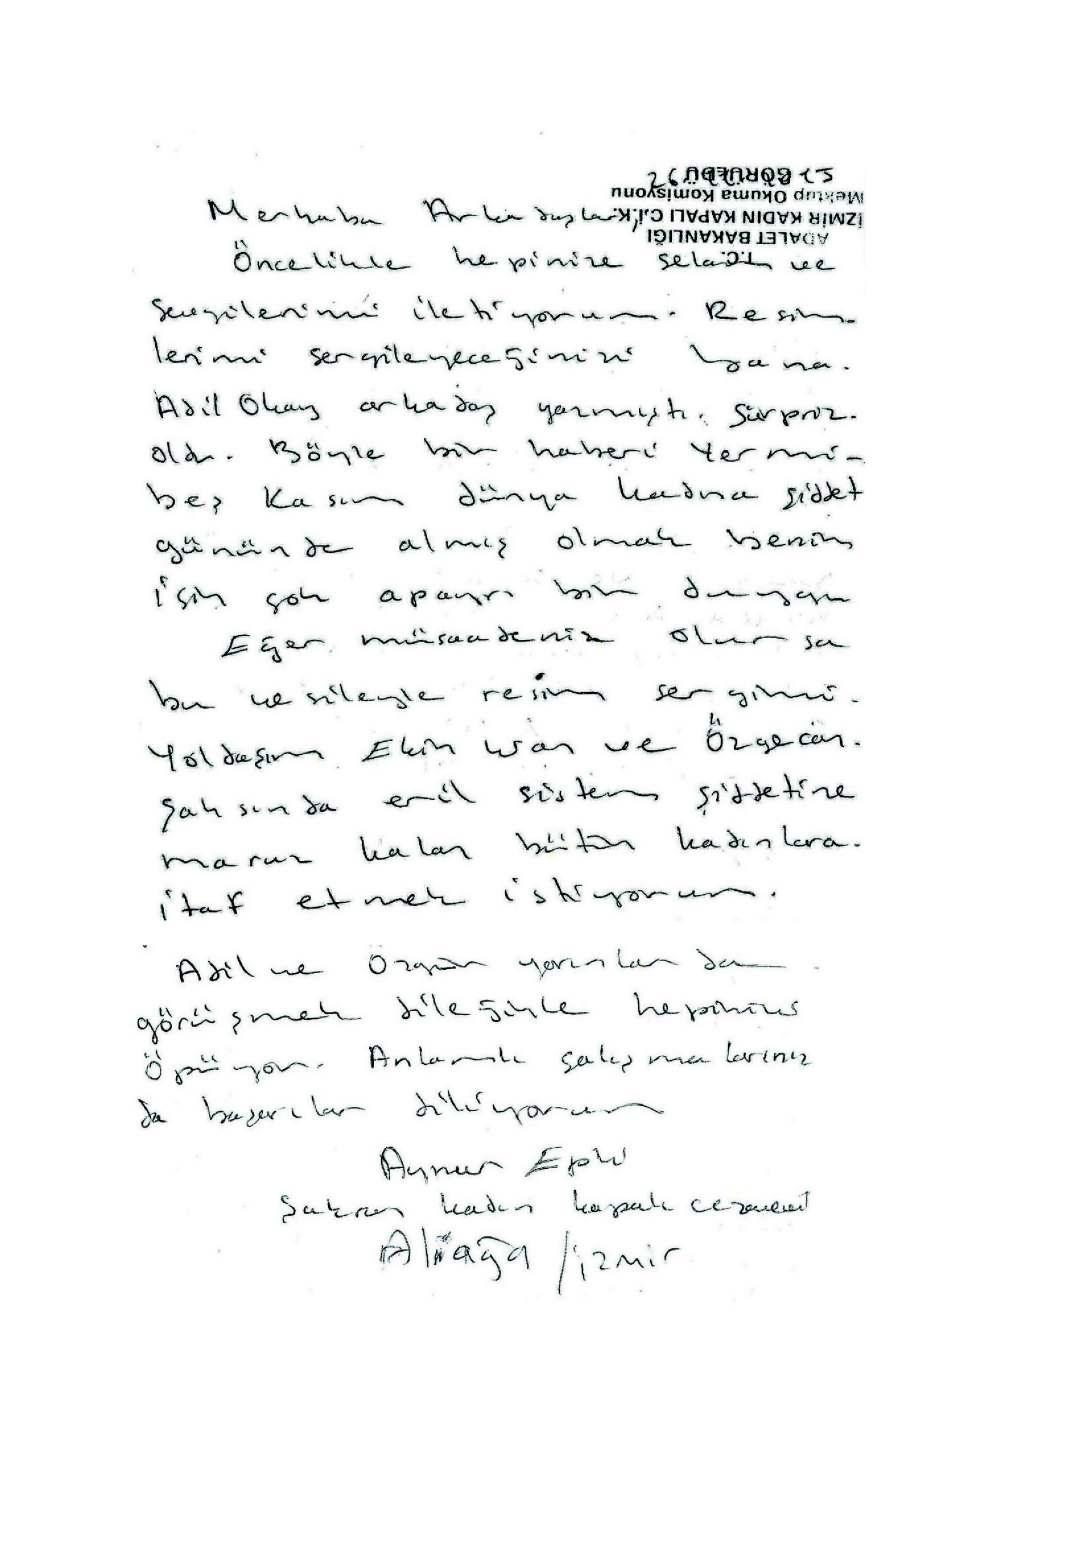 Merhaba Arkadaşlar.
T.C.
ADALET BAKANLIĞI
İZMİR KADIN KAPALI C.İ.K.
Mektup Okuma Komisyonu
GÖRÜLDÜ
Öncelikle hepinize selam ve
sevgilerimi iletiyorum. Resim-
lerimi sergileyeceğinizi bana.
Adil Okay arkadaş yazmıştı. Sürpriz.
oldu. Böyle bir haberi Yermi-
beş Kasım dünya kadına şiddet
gününde almış olmak benim
için çok apayrı bir duygu
Eğer müsaadeniz olursa
bu vesileyle resim sergimi.
Yoldaşım Ekin Wan ve Özgecan.
şahsında eril sistem şiddetine
maruz kalan bütün kadınlara.
itaf etmek istiyorum.
Adil ve Özgür yarınlarda
görüşmek dileğiyle hepinizi
Öpüyor. Anlamlı çalışmalarınız
da başarılar diliyorum
Aynur Epli
Şakran kadın kapalı cezaevi
Aliağa / izmir